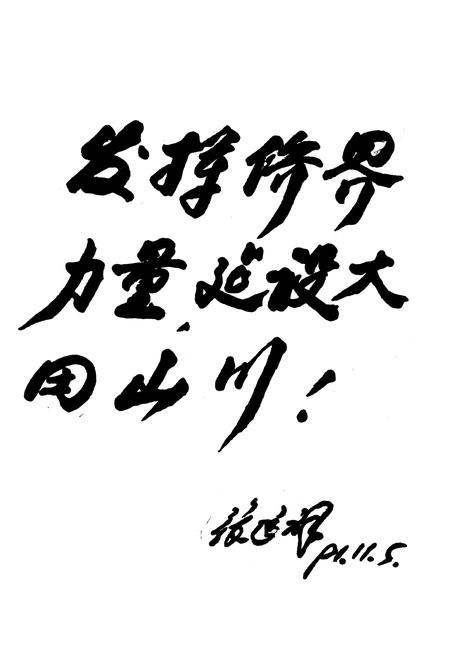 发挥侨界
力量,建设大
田山川!
91.11.5.